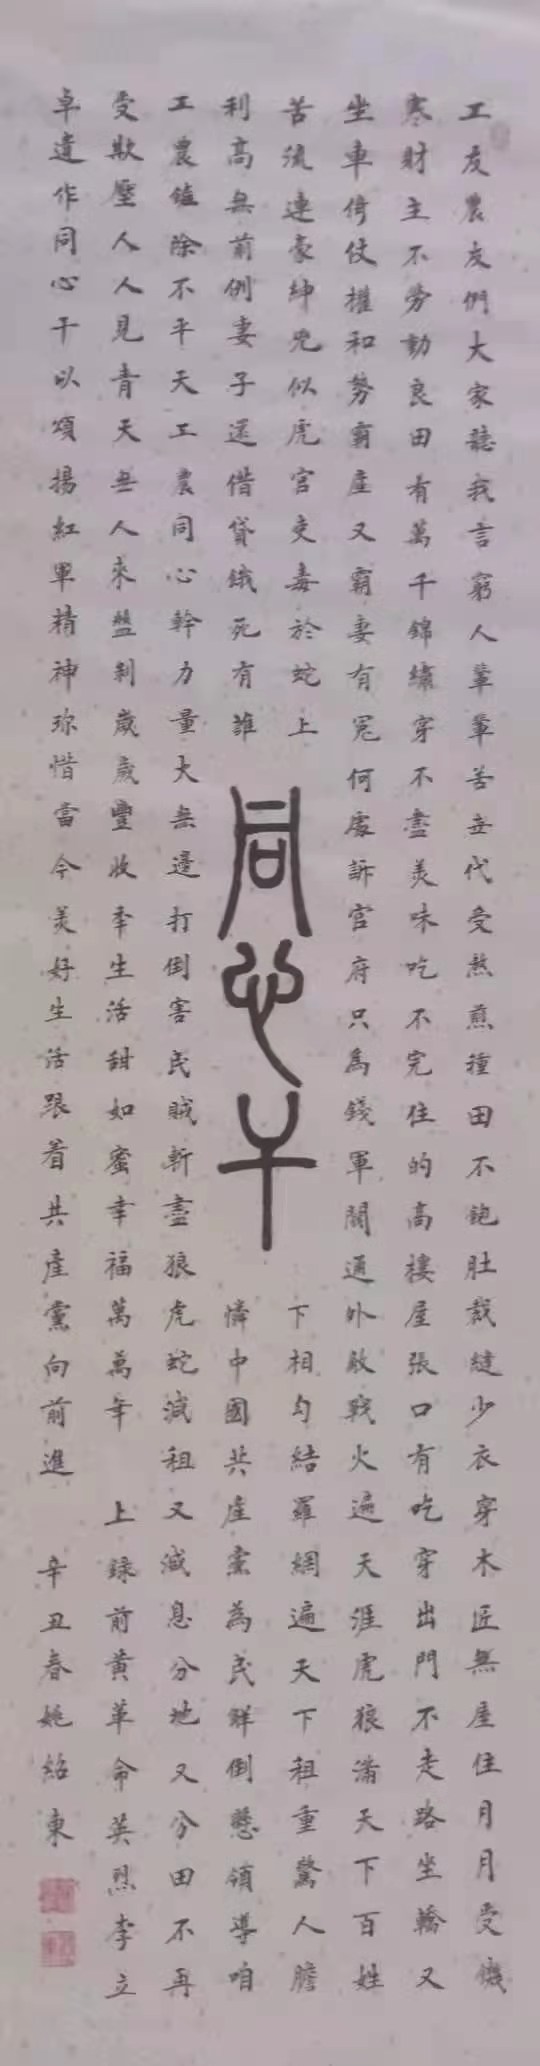 同心干
工友農友們大家聽我言窮人輩輩苦世代受熬煎種田不飽肚裁縫少衣穿木匠無屋住月月受饑
寒財主不勞動良田有萬千錦繡穿不盡美味吃不完住的高樓屋張口有吃穿出門不走路坐轎又
坐車倚仗權和勢霸產又霸妻有冤何處訴官府只為錢軍閥通外敵戰火遍天涯虎狼滿天下百姓
苦流連豪紳兇似虎官吏毒於蛇上下相勾結羅網遍天下租重驚人膽
利高無前例妻子還借貸餓死有誰憐中國共產黨為民解倒懸領導咱
工農鏟除不平天工農同心幹力量大無邊打倒害民賊斬盡狼虎蛇減租又減息分地又分田不再
受欺壓人人見青天無人來盤剝歲歲豐收年生活甜如蜜幸福萬萬年 上錄前黃革命英烈李立
卓遺作同心干以頌揚紅軍精神珍惜當今美好生活跟着共產黨向前進 辛丑春姚紹東